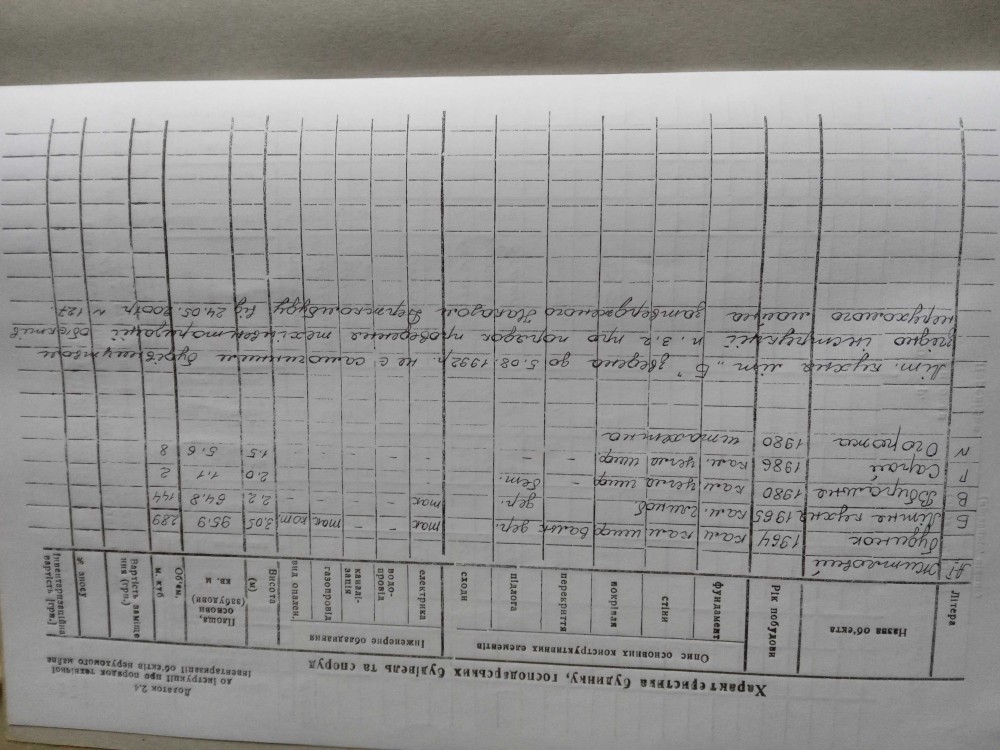 Додаток 2.4
до Інструкції про порядок технічної
інвентаризації об'єктів нерухомого майна
Характеристика будинку, господарських будівель та споруд
Літера Назва об'єкта Рік побудови Опис основних конструктивних елементів Інженерне обладнання Висота (м) Площа, основи (забудови) кв. м Об'єм, м. куб Вартість заміщення (грн.) % зносу Інвентаризаційна вартість (грн.)
фундамент стіни покрівля перекриття підлога сходи електрика водопровід каналізація газопровід вид опален.
А1 Житловий
будинок 1964 кам кам шифр вальк дер. мах - - мах кот. 3.05 95.9 289
Б Літня кухня 1965 кам. дер. мах - - - - 2.2 64.8 144
В Вбиральня 1980 кам цегла шифр - бет. 2.0 1.1 2
Г Сарай 1986 кам. цегла шифр. - - - - - - - 1.5 5.6 8
N Огорожа 1980 штахетна
Літ. кухня літ „Б" зведена до 5.08.1992р. не є самочинним будівництвом
згідно інструкції п. 3.2 про порядок проведення техінвентаризації об'єктів
нерухомого майна затвердженого Наказом Держкомбуду від 24.05.2001р N 127